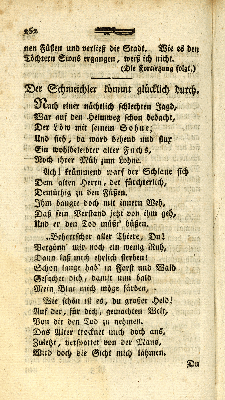 262
nen Füßen und verließ die Stadt. Wie es den
Töchtern Sions ergangen, weiß ich nicht.
(Die Fortsetzung folgt.)
Der Schmeichler kommt glücklich durch.
Nach einer nächtlich schlechten Jagd,
War auf den Heimweg schon bedacht,
Der Löw mit seinem Sohne;
Und sieh, da ward behend und flux
Ein wohlbeleibter alter Fuchs,
Noch ihrer Müh zum Lohne.
Ach! krümmend warf der Schlaue sich
Dem alten Herrn, der fürchterlich,
Demüthig zu den Füßen.
Ihm bangte doch mit innern Weh,
Daß sein Verstand jetzt von ihm geh,
Und er den Tod müßt' büßen.
„Beherrscher aller Thiere, Du!
Vergönn' mir noch ein wenig Ruh,
Dann laß mich ehrlich sterben!
Schon lange hab' in Forst und Wald
Gesucht dich, damit um bald
Mein Blut mich möge färben.
Wie schön ist es, du großer Held!
Auf der, für dich, gemachten Welt,
Von dir den Tod zu nehmen.
Das Alter trocknet mich doch aus,
Zuletzt, verspottet von der Maus,
Wird doch die Gicht mich lähmen.
Du